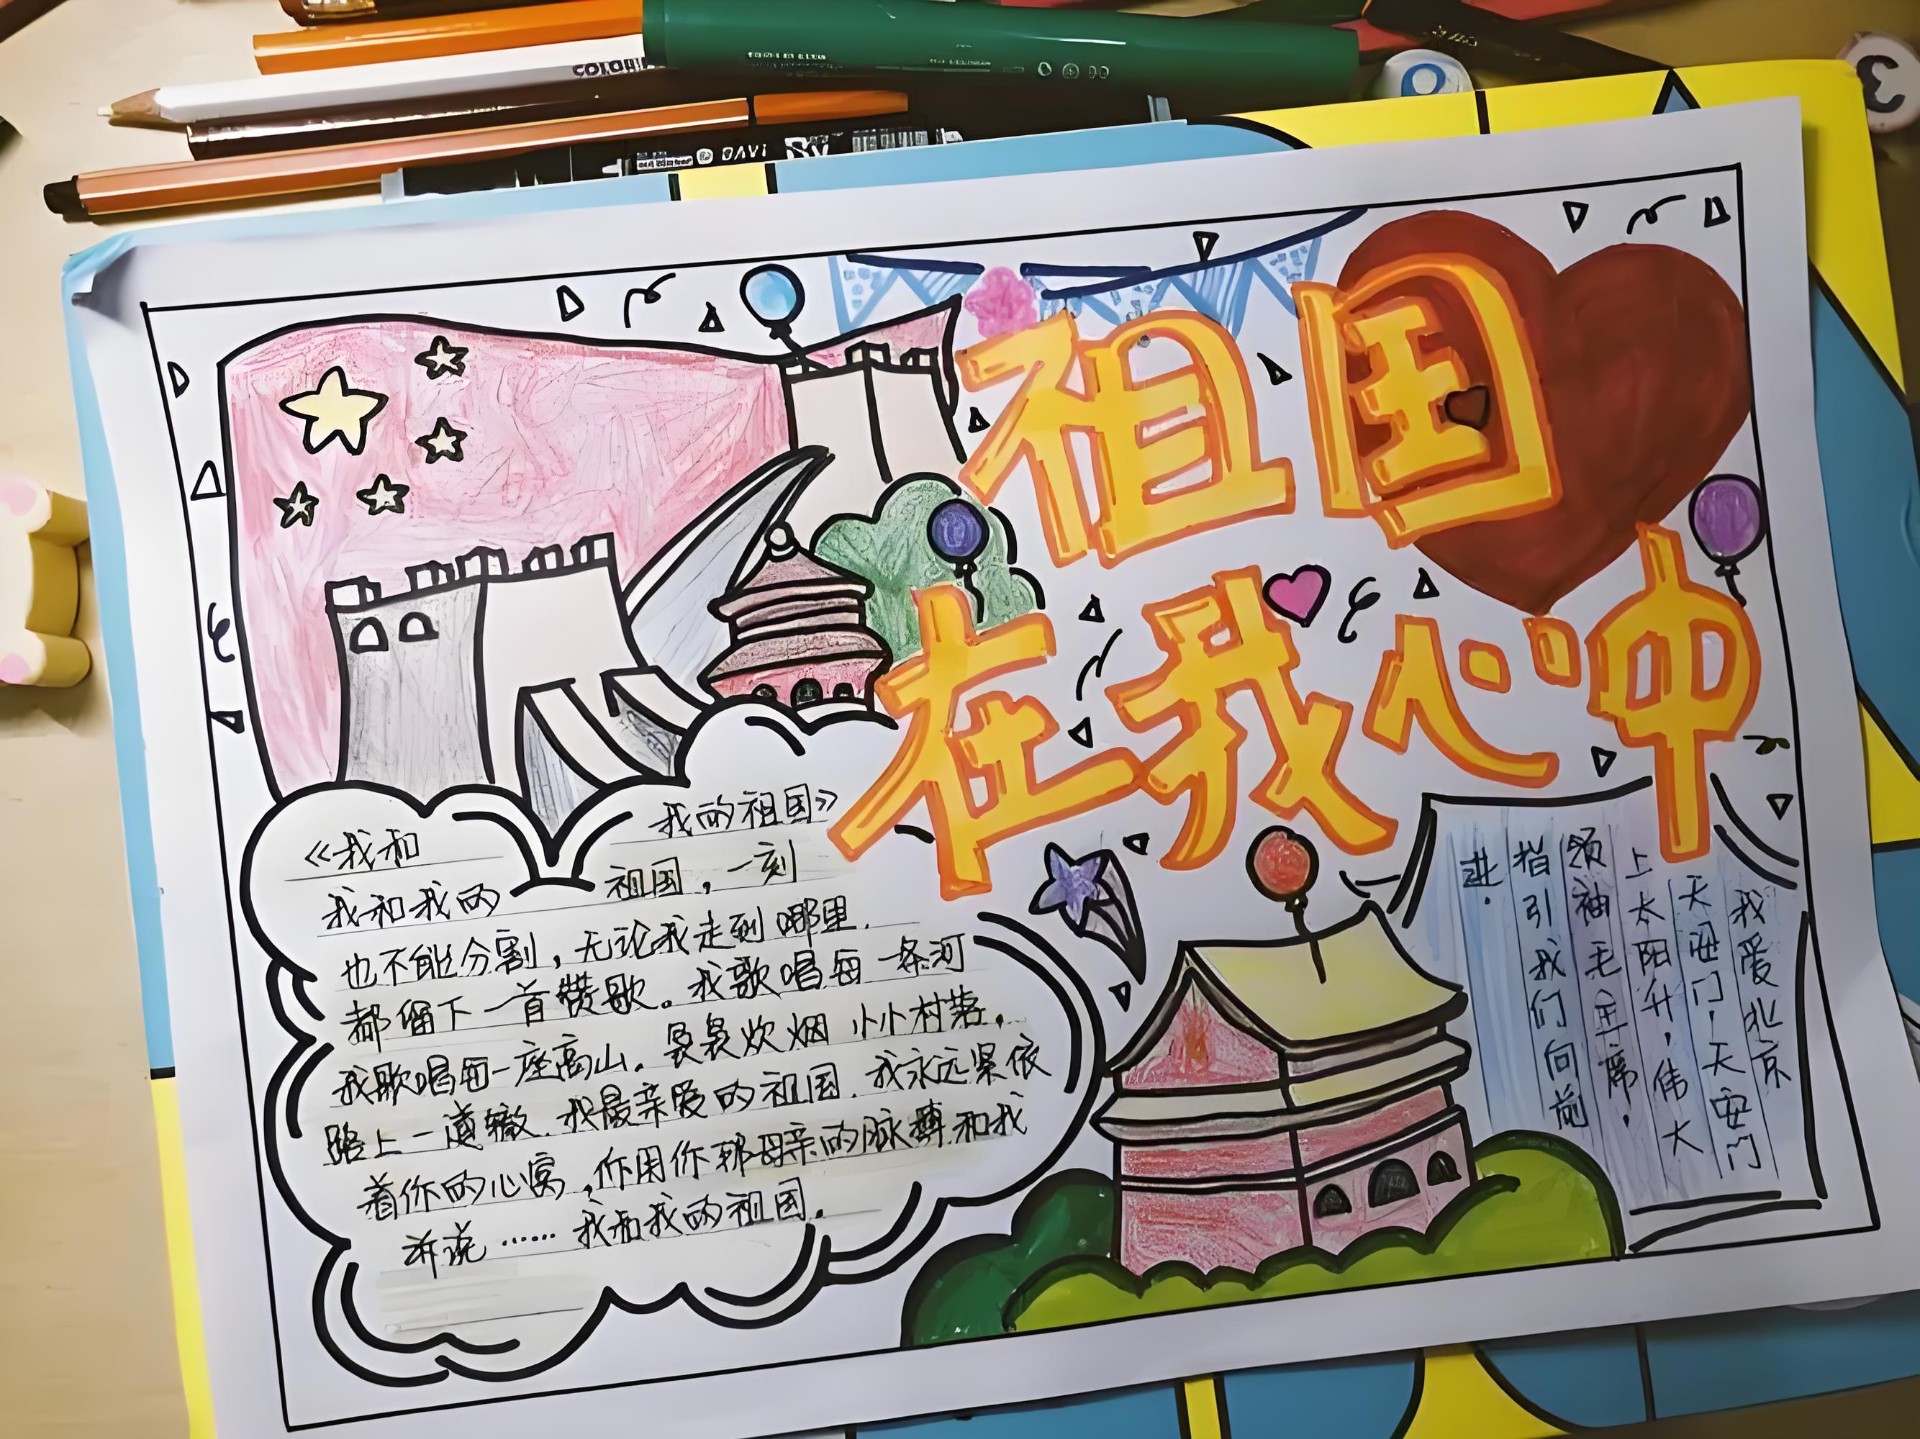 COLOUR
DAVi
3
祖国
在我心中
《我和
我的祖国》
我和我的
祖国,一刻
也不能分割,无论我走到哪里.
都留下一首赞歌。我歌唱每一条河
我歌唱每一座高山.袅袅炊烟 小小村落.
路上一道辙.我最亲爱的祖国.我永远紧依
着你的心窝,你用你那母亲的脉搏和我
诉说……我和我的祖国.
我爱北京
天安门,天安门
上太阳升,伟大
领袖毛主席.
指引我们向前
进.